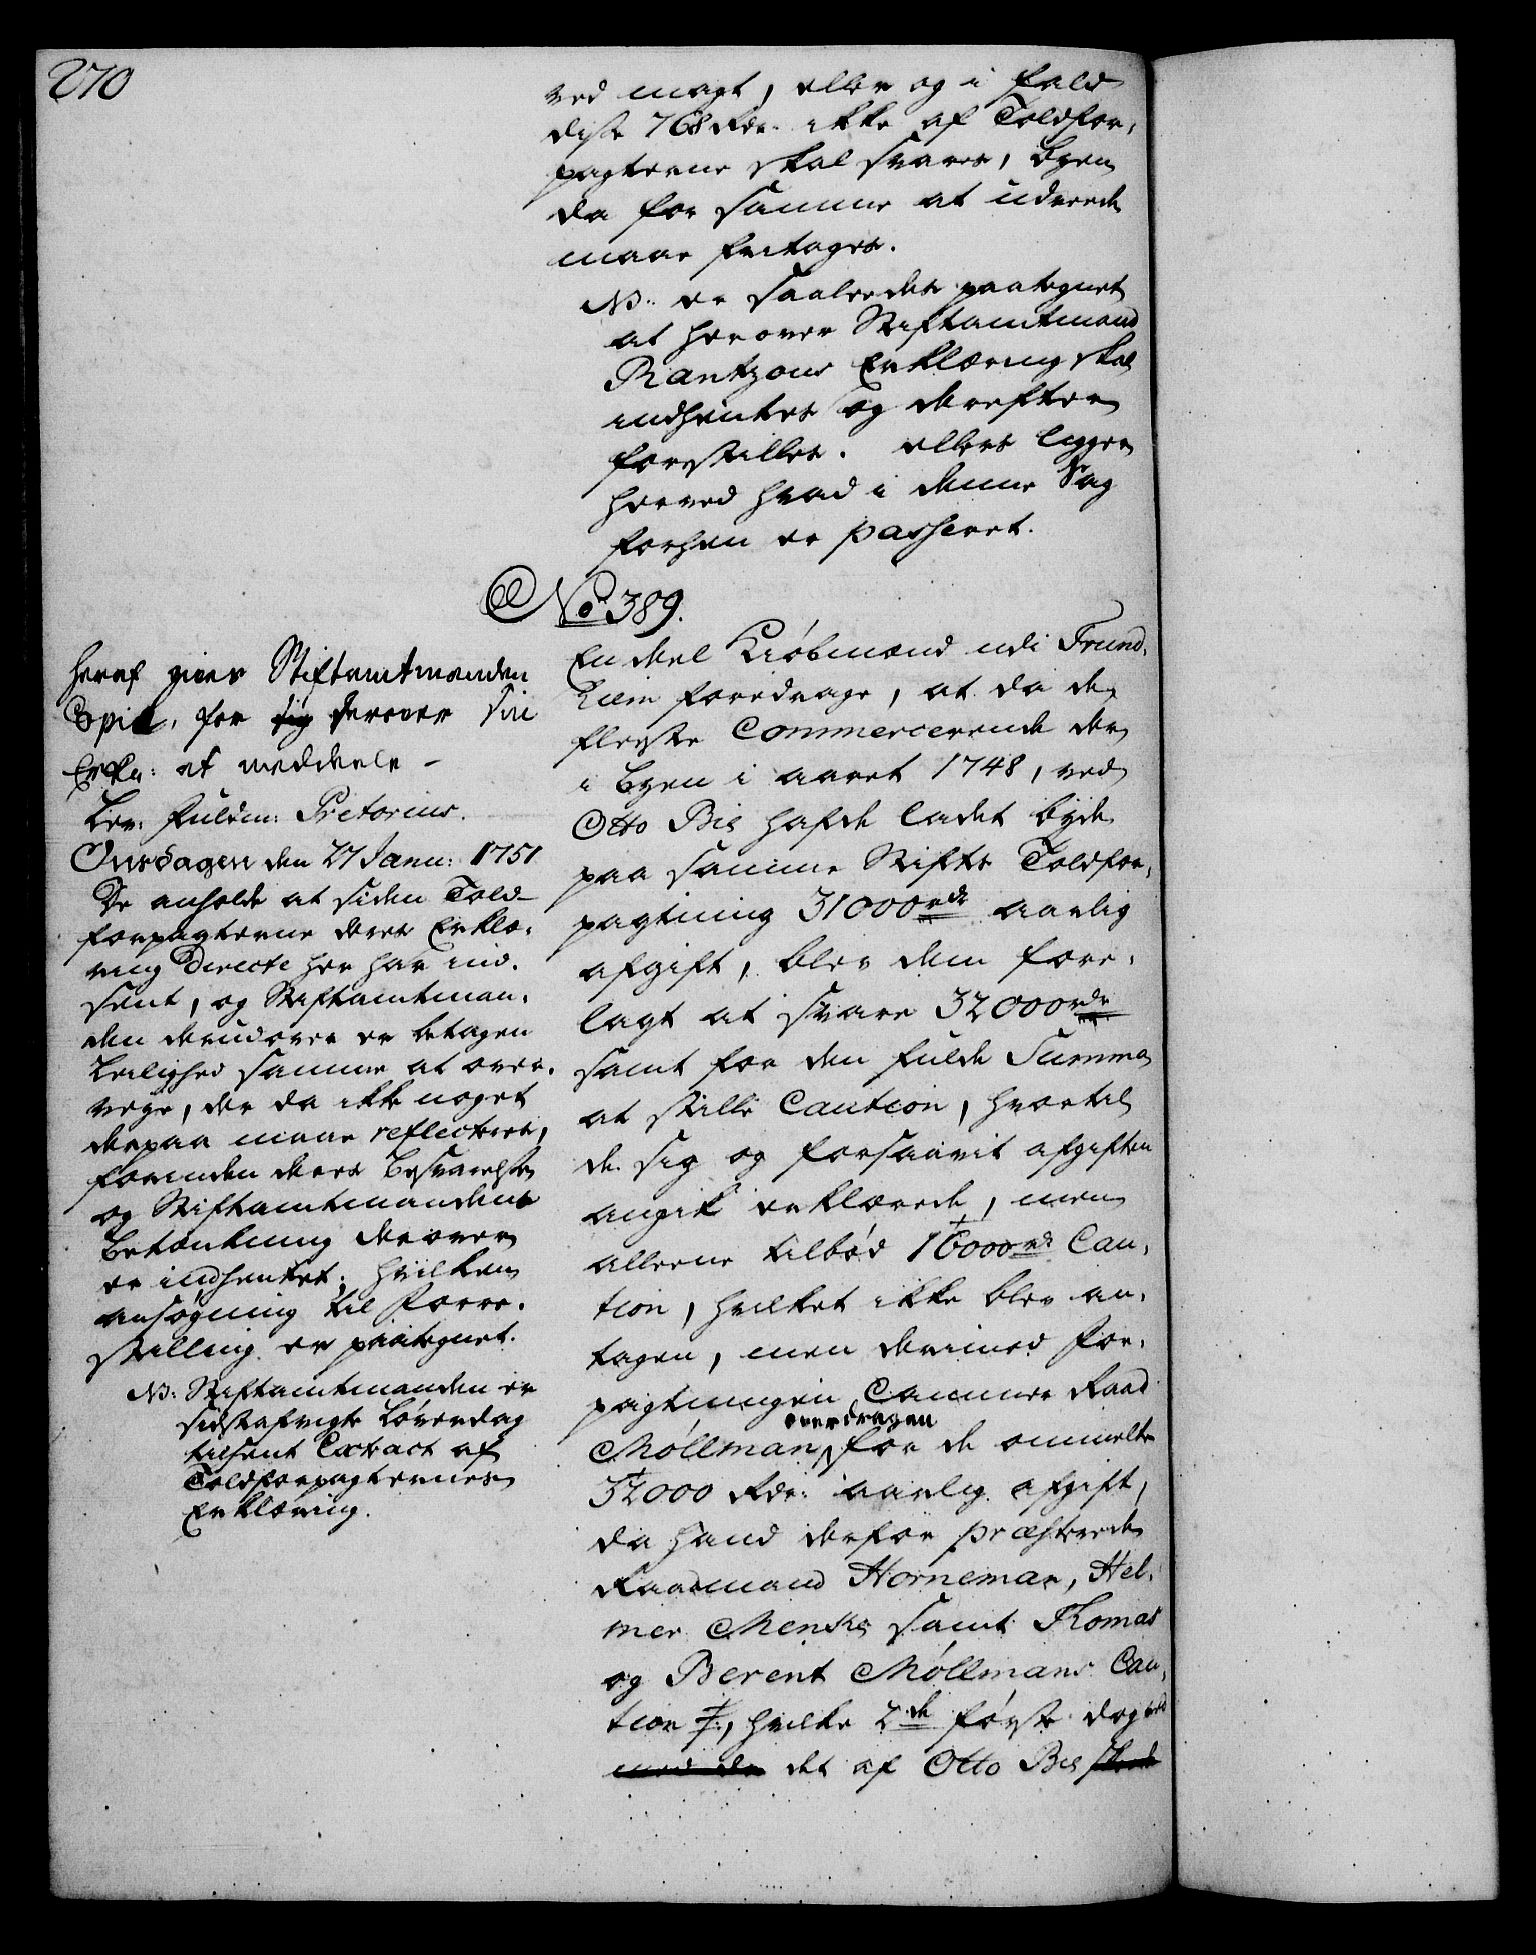 270
ved magt, eller og i fald
disse 768 Rdr. ikke af Toldfor,
pagterne skal svares, byen
da for samme at udreede
maae fritages.
NB: er saaledes paategnet
at herover Stiftamtmand
Rantzous Erklæring skal
indhentes og derefter
forestilles. ellers ligger
herved hvad i denne Sag
forhen er passeret.
No 389.
En deel Kiøbmænd udi Trund,
hiem foredrage, at da de
fleeste Commercerende der
i byen i aaret 1748, ved
Otto Bie hafde ladet byde
paa samme Stifts Toldfor,
pagtning 31000 rdr aarlig
afgift, blev dem fore,
lagt at svare 32000 rdr
samt for den fulde Summa
at stille Caution, hvortil
de sig og forsaavit afgiften
angik erklærede, men
alleene tilbød 16000 rd Cau,
tion, hvilket ikke blev an,
tagen, men derimod for,
pagtningen Cammer Raad
Møllman overdragen for de ommelte
32000 Rdr: aarlig afgift,
da hand derfor præsterede
Raadmand Horneman, Hel,
mer Menks samt Thomas
og Berent Møllmans Cau,
tion, hvilke 2de første dog
med de det af Otto Bie
Heraf gives Stiftamtmanden
Copie, for sig derover sin
Erkl: at meddeele –
Lev: Fuldm: Pretorius.
Onsdagen den 27 Janu: 1751
De anholde at siden Told-
forpagterne deres Erklæ,
ring directe her har ind,
sent, og Stiftamtman,
den derudover er betagen
Leilighed samme at over,
veye, der da ikke noget
derpaa maae reflecteres,
forinden deres besvarelse
og Stiftamtmandens
Betænkning derover
er indhentet; hvilken
ansøgning til Fore,
stilling er paategnet.
NB: Stiftamtmanden er
sidstafvigte Løverdag
tilsent Extract af
Toldforpagternes
Erklæring.